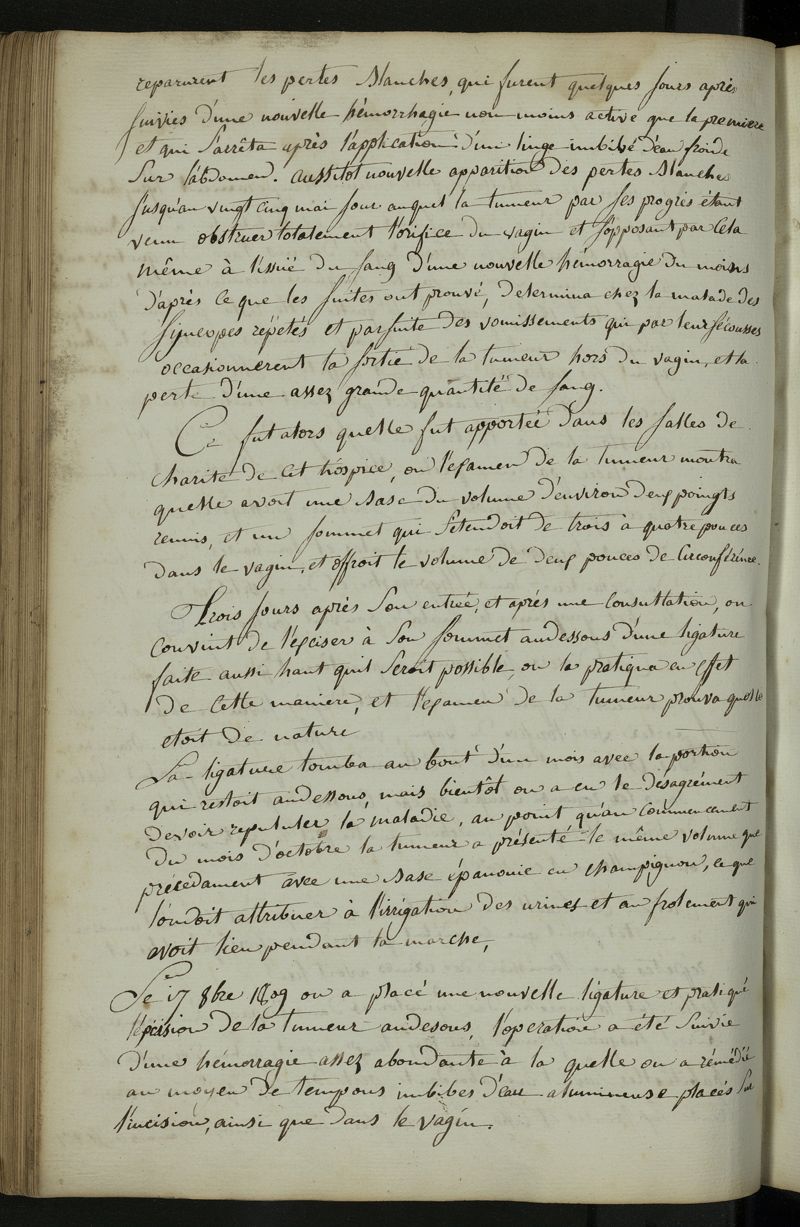 reparurent les pertes blanches, qui furent quelques jours après
suivies d'une nouvelle hémorrhagie non moins active que la premiere
et qui s'arrêta après l'application d'un linge imbibé d'eau froide
sur l'abdomen. aussitot nouvelle apparition des pertes blanches
jusqu'au vingt cinq mai jour auquel la tumeur par ses progrès étant
venu obstruer totalement l'orifice du vagin et s'opposant par cela
même à l'issue du sang d'une nouvelle hémorragie du moins
d'après ce que les suites ont prouvé, determina chez la malade des
sijncopes répétés et par suite des vomissements qui par leur sécousses
occasionnerent la sortie de la tumeur hors du vagin, et la
perte d'une assez grande quantité de sang.
Ce fut alors quelle fut apportée dans les salles de
charité de cet hospice, ou l'examen de la tumeur montra
quelle avoit une base du volume d'environ deux poingts
reunis, et un sommet qui s'etendoit de trois à quatre pouces
dans le vagin, et offroit le volume de deux pouces de circonférence.
Trois jours après son entrée, et après une consultation, on
convint de l'exciser à son sommet audessous d'une ligature
faite aussi haut quil seroit possible, on la pratiqua en effet
de cette maniere, et l'examen de la tumeur prouva quelle
etoit de nature
La ligature tomba au bout d'un mois avec la portion
qui restoit audessous, mais bientôt on a eu le désagrément
devoir repululer la maladie, au point qu'au commencement
du mois d'octobre la tumeur a présenté le même volume que
précédament avec une base épanouie en champignon, ce que
l'on doit attribuer à l'irrigation des urines et au frotement qui
avoit lieu pendant la marche,
Le 17 8bre 1809 on a placé une nouvelle ligature et pratiqué
l'éxcision de la tumeur audesous, l'operation a été suivie
d'une hémorragie assez abondante à la quelle on a rémédié
au moyen de tempons imbibes d'eau alumineuse placés sur
l'incision, ainsi que dans le vagin.